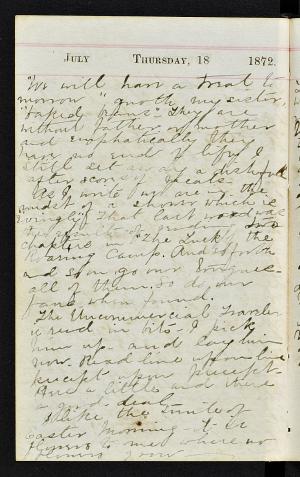 JULY THURSDAY, 18 1872.
"We will have a treat to
morrow" quoth my sister,
"baked beans" They are
without father or mother
and emphatically they
have no end of life. I
still set at a dishful
after scores of years.
As I write we are in the
midst of a shower which is
living. That last word was
the
chapters in "The Luck of the
Roaring Camp. And so forth
and so on go our tongues
all of them. So do our
fans when found.
The Uncommercial Traveler
is read in bits - I pick
him up and lay him
now. Read line upon line
precept upon precept -
here a little and there
a deal -
I like the Smile of
Easter morning - it is
flowers to me where no
flowers grow -